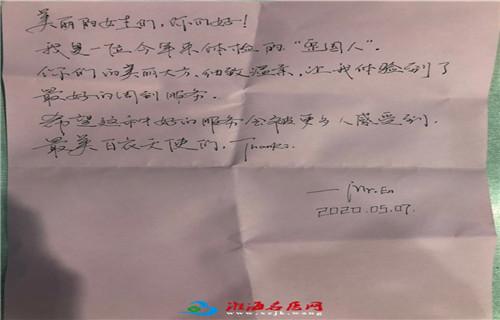 美丽的女士们,你们好!
我是一位今年来体检的"歪国人"。
你们的美丽大方、细致温柔,让我体验到了
最好的周到服务。
希望这种好的服务会被更多人感受到。
最美白衣天使们,Thanks.
—Mr.En
2020.05.07.
淮海名医网
www.xzjk.wang